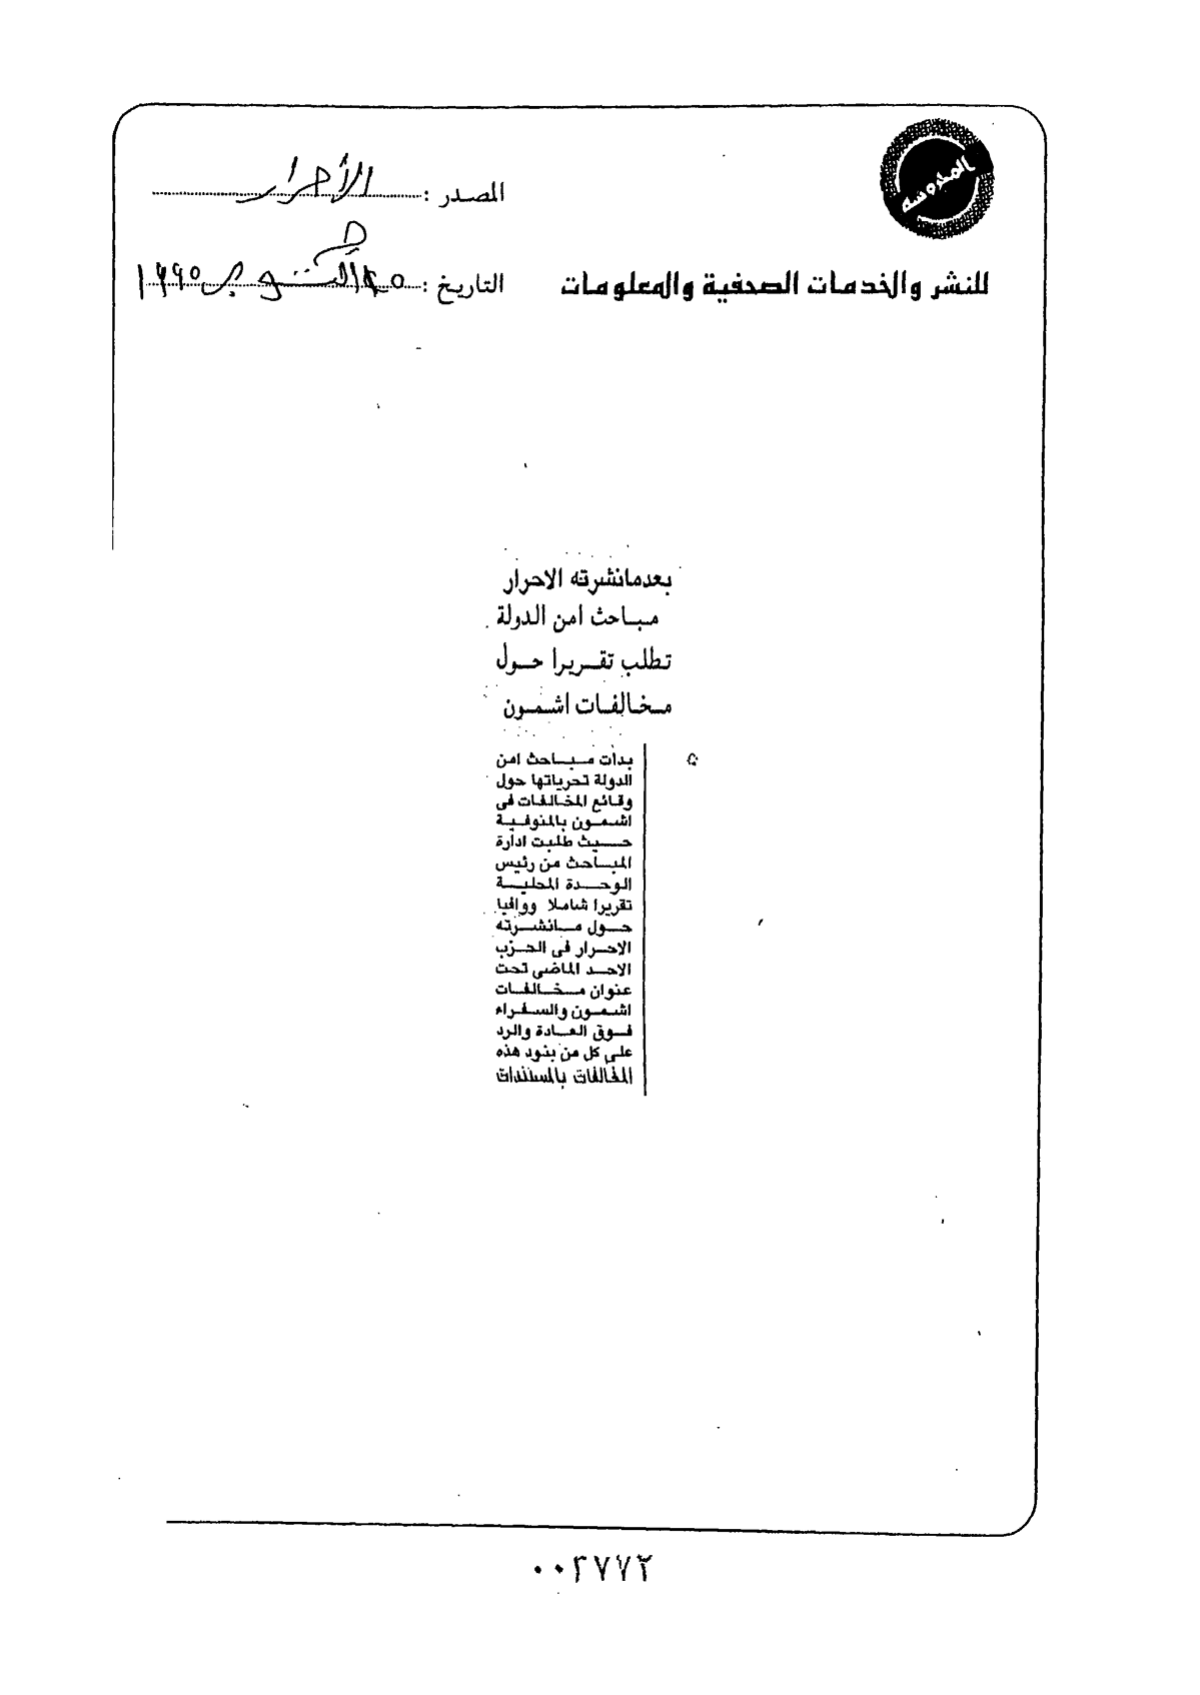 المدروسة
المصدر : الأحرار
للنشر والخدمات الصحفية والمعلومات
التاريخ : ٢٥ أكتوبر ١٩٩٥
بعدمانشرته الاحرار
مباحث امن الدولة
تطلب تقريرا حول
مخالفات اشمون
بدأت مباحث امن
الدولة تحرياتها حول
وقائع المخالفات فى
اشمون بالمنوفية
حيث طلبت ادارة
المباحث من رئيس
الوحدة المحلية
تقريرا شاملا ووافيا
حول مانشرته
الاحرار فى الحزب
الاحد الماضى تحت
عنوان مخالفات
اشمون والسفراء
فوق العادة والرد
على كل من بنود هذه
المخالفات بالمستندات
٠٠٢٧٧٢